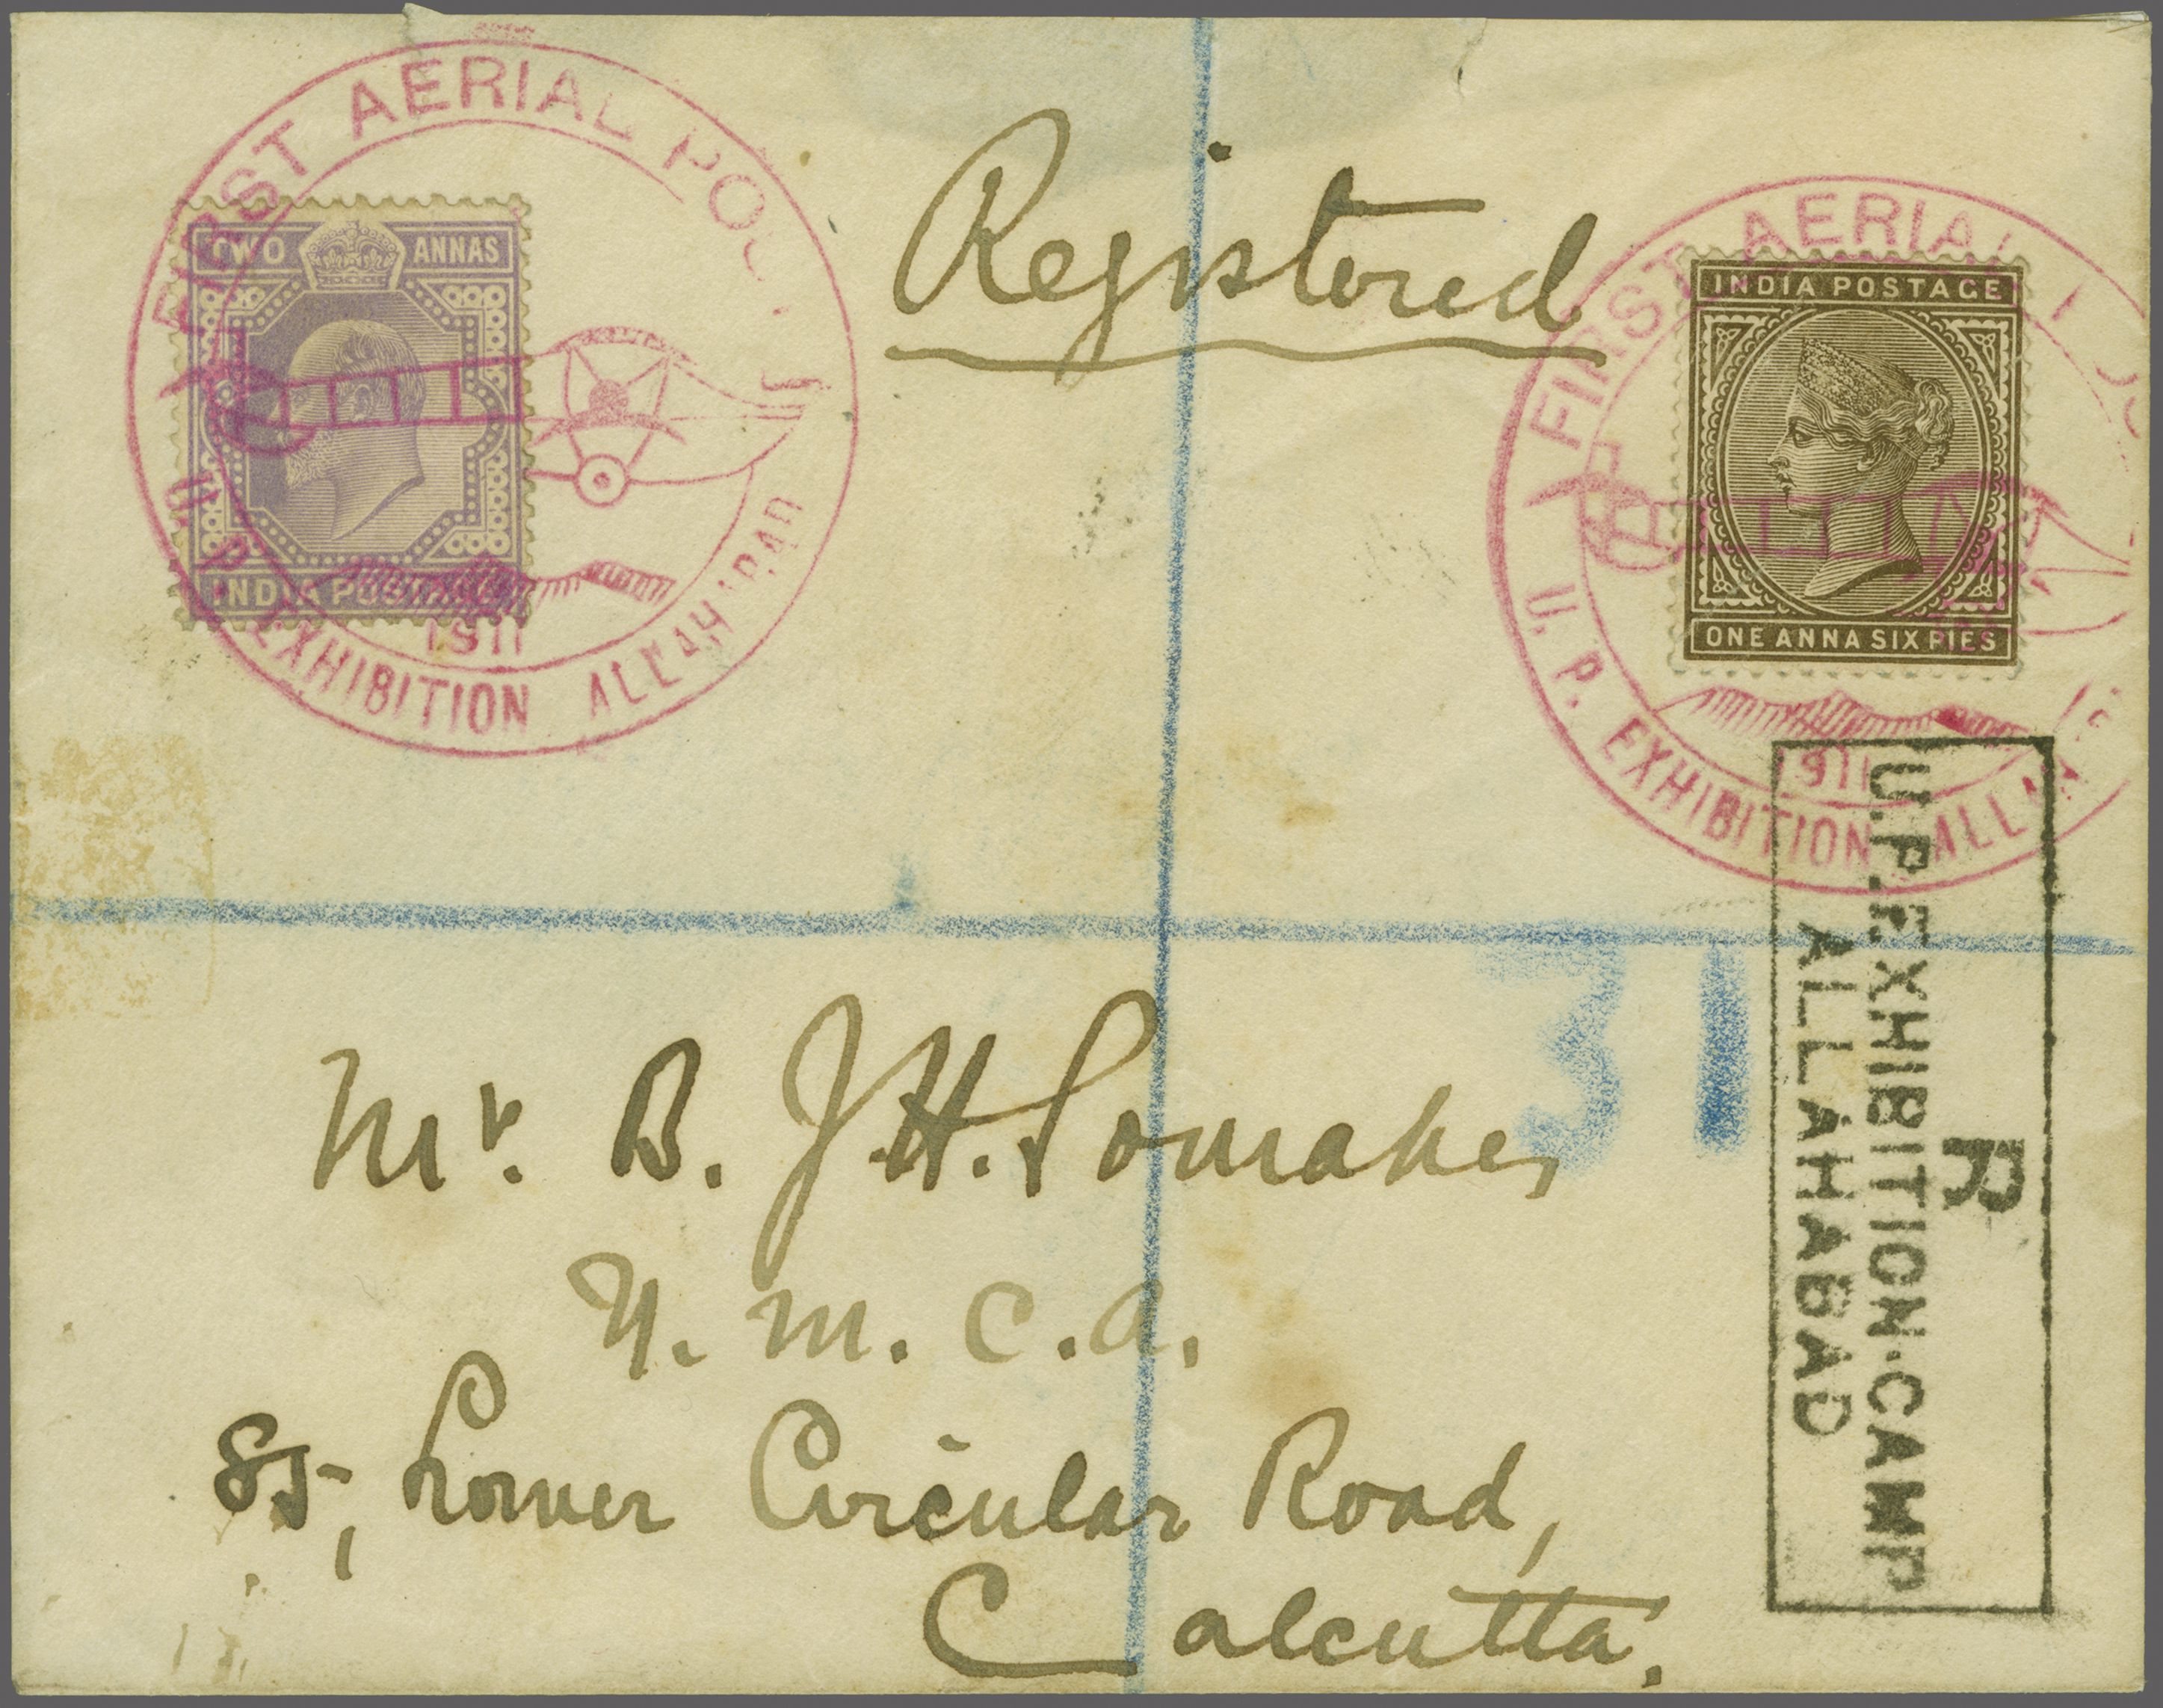 FIRST AERIAL POST
TWO ANNAS
INDIA POSTAGE
1911
U. P. EXHIBITION ALLAHABAD
Registered
FIRST AERIAL
INDIA POSTAGE
ONE ANNA SIX PIES
1911
U. P. EXHIBITION ALLA
31
R
U.P. EXHIBITION·CAMP
ALLAHABAD
Mr. B. J. H.
Y. M. C. A.
85, Lower Circular Road,
Calcutta.